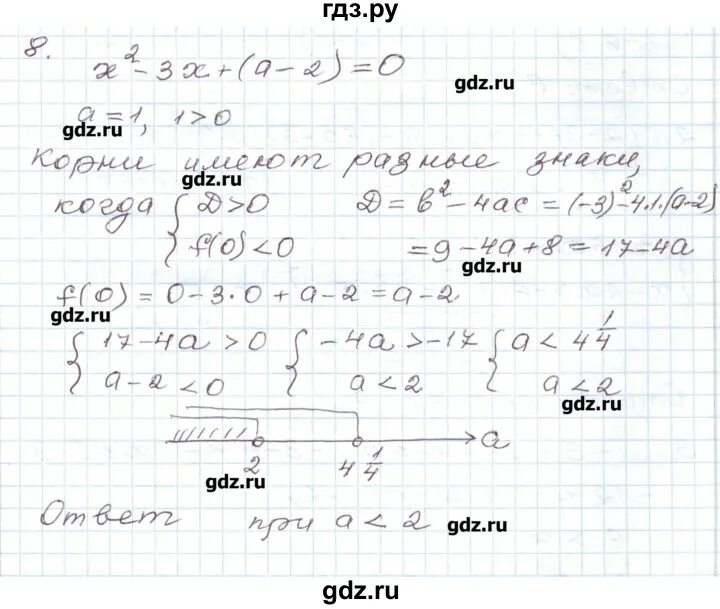 гдз.ру
8.
x² - 3x + (a - 2) = 0
gdz.ru
a = 1, 1 > 0
gdz.ru
Корни имеют разные знаки,
gdz.ru
когда { D > 0 D = b² - 4ac = (-3)² - 4·1·(a-2)
{ f(0) < 0 = 9 - 4a + 8 = 17 - 4a
gdz.ru
f(0) = 0 - 3·0 + a - 2 = a - 2
gdz.ru
{ 17 - 4a > 0 { -4a > -17 { a < 4 1/4
{ a - 2 < 0 { a < 2 { a < 2
gdz.ru
a
2 4 1/4
gdz.ru
Ответ при a < 2
gdz.ru
gdz.ru